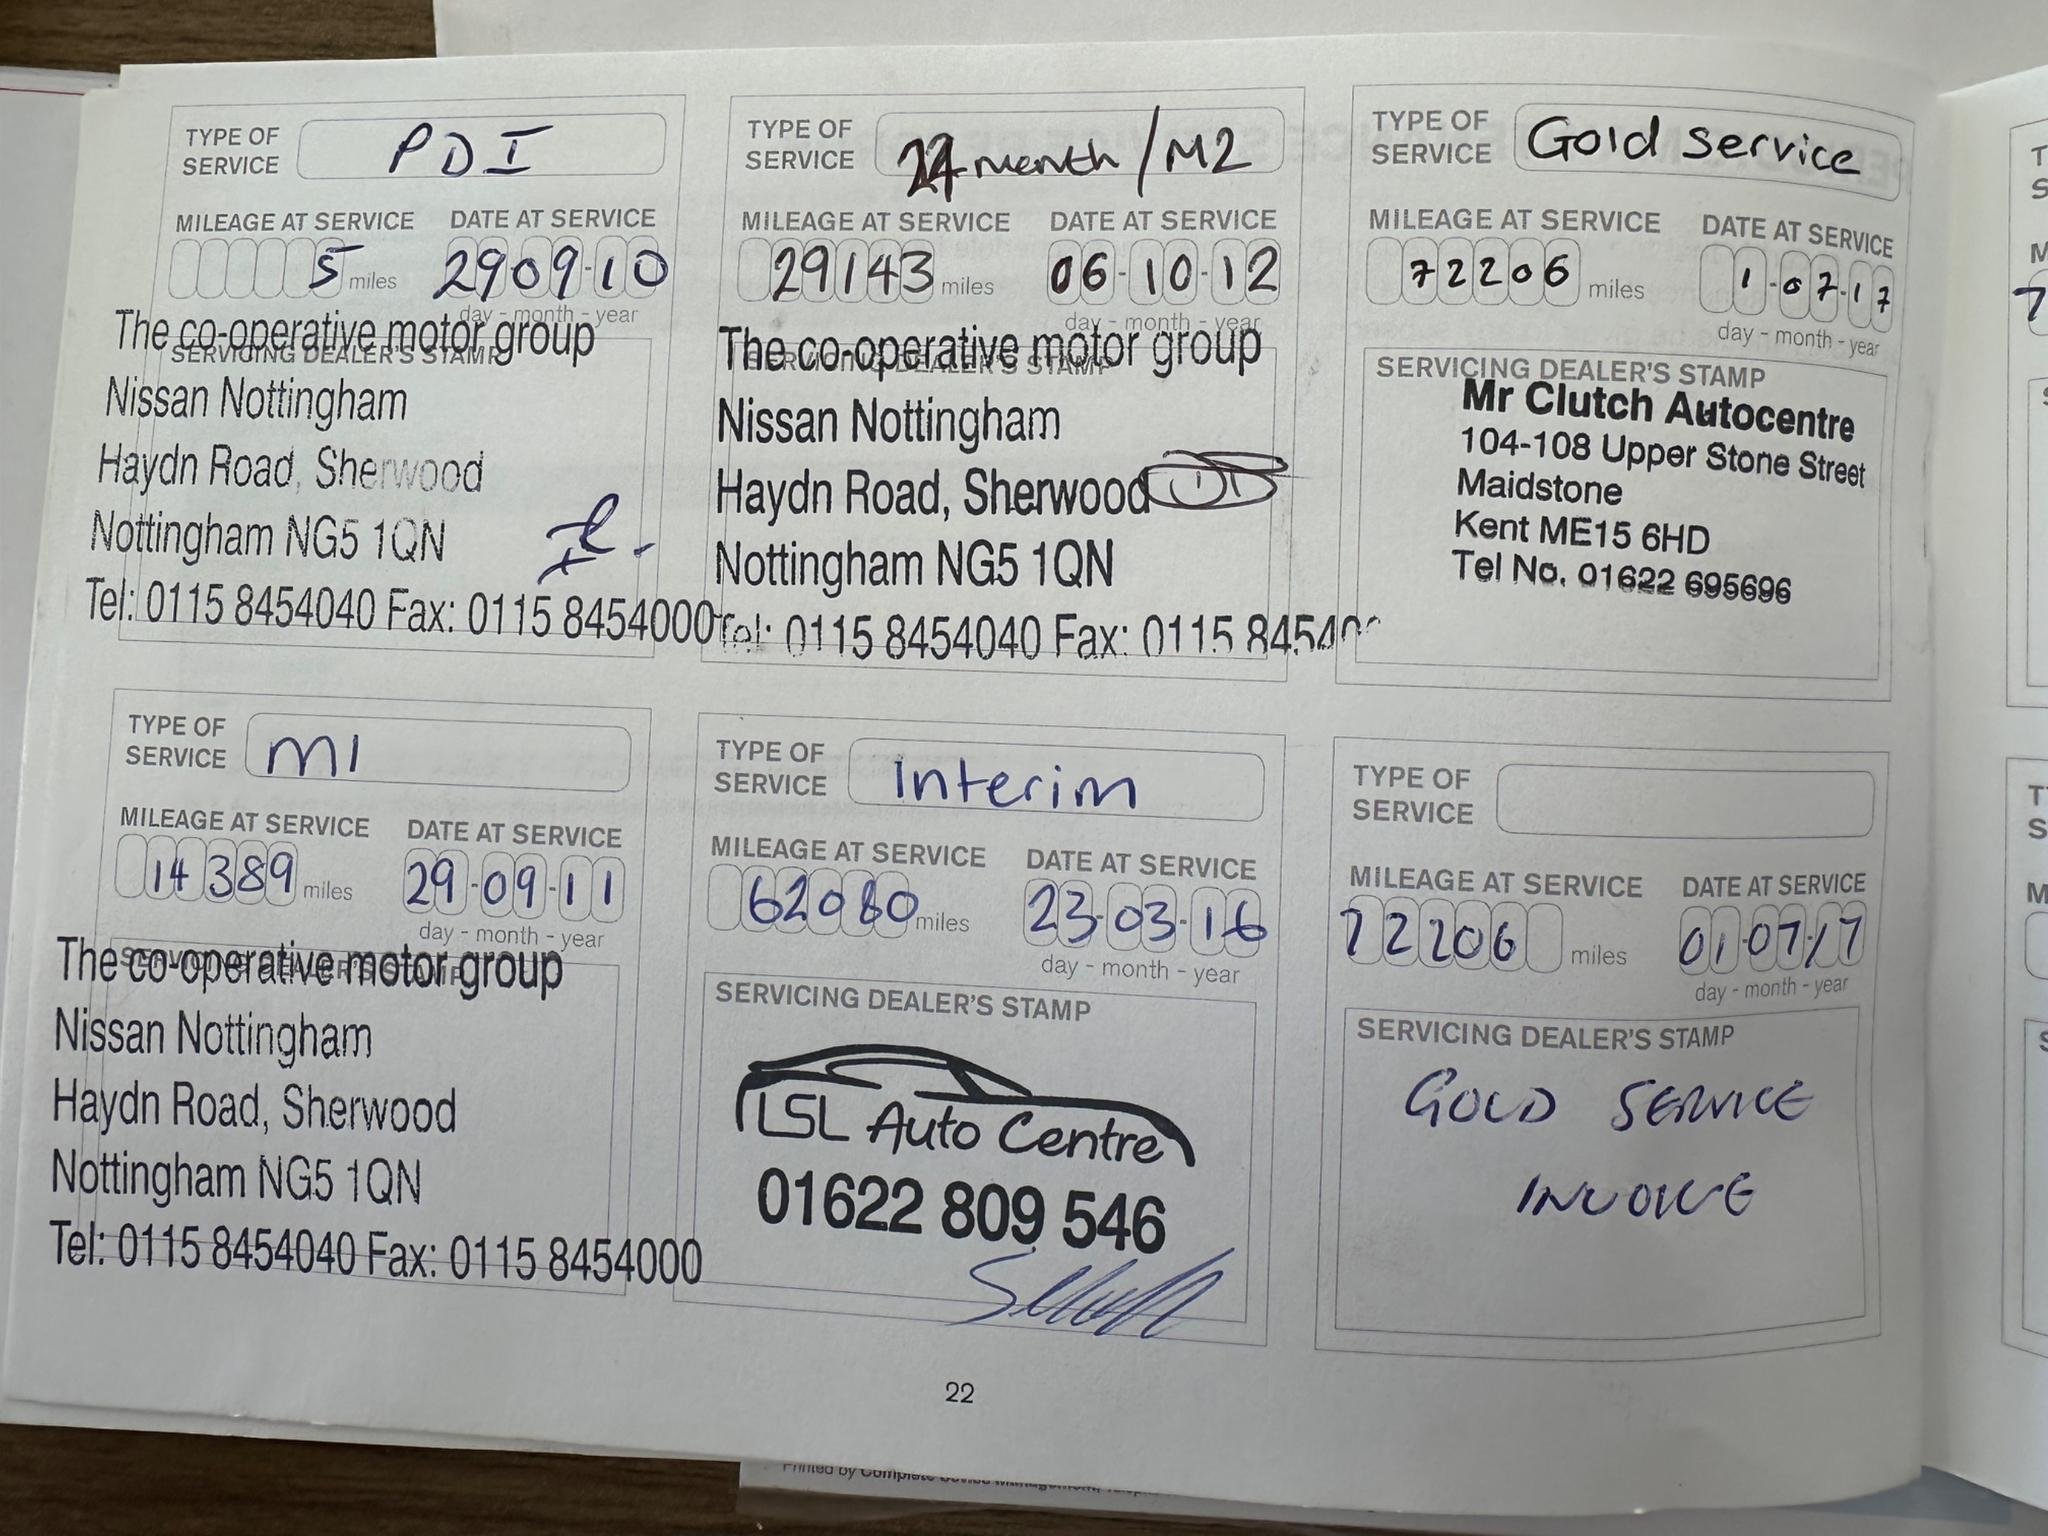 TYPE OF SERVICE PDI
MILEAGE AT SERVICE DATE AT SERVICE
5 miles 29 09-10
day - month - year
SERVICING DEALER'S STAMP
The co-operative motor group
Nissan Nottingham
Haydn Road, Sherwood
Nottingham NG5 1QN
Tel: 0115 8454040 Fax: 0115 8454000
TYPE OF SERVICE 24 month / M2
MILEAGE AT SERVICE DATE AT SERVICE
29143 miles 06-10-12
day - month - year
SERVICING DEALER'S STAMP
The co-operative motor group
Nissan Nottingham
Haydn Road, Sherwood
Nottingham NG5 1QN
Tel: 0115 8454040 Fax: 0115 84540
TYPE OF SERVICE Gold service
MILEAGE AT SERVICE DATE AT SERVICE
72206 miles 1-07-17
day - month - year
SERVICING DEALER'S STAMP
Mr Clutch Autocentre
104-108 Upper Stone Street
Maidstone
Kent ME15 6HD
Tel No. 01622 695696
TYPE OF SERVICE M1
MILEAGE AT SERVICE DATE AT SERVICE
14389 miles 29-09-11
day - month - year
SERVICING DEALER'S STAMP
The co-operative motor group
Nissan Nottingham
Haydn Road, Sherwood
Nottingham NG5 1QN
Tel: 0115 8454040 Fax: 0115 8454000
TYPE OF SERVICE Interim
MILEAGE AT SERVICE DATE AT SERVICE
miles 23-03-16
day - month - year
SERVICING DEALER'S STAMP
LSL Auto Centre
01622 809 546
TYPE OF SERVICE
MILEAGE AT SERVICE DATE AT SERVICE
72206 miles 01-07/17
day - month - year
SERVICING DEALER'S STAMP
GOLD SERVICE
INVOICE
22
Printed by Complete